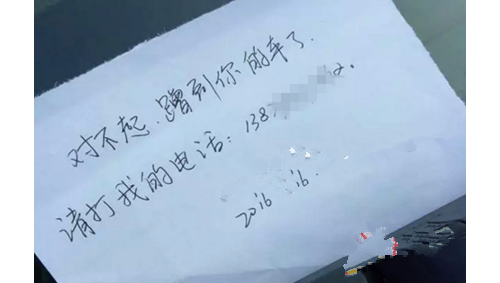 对不起,蹭到你的车了.
请打我的电话:138
2016 16.